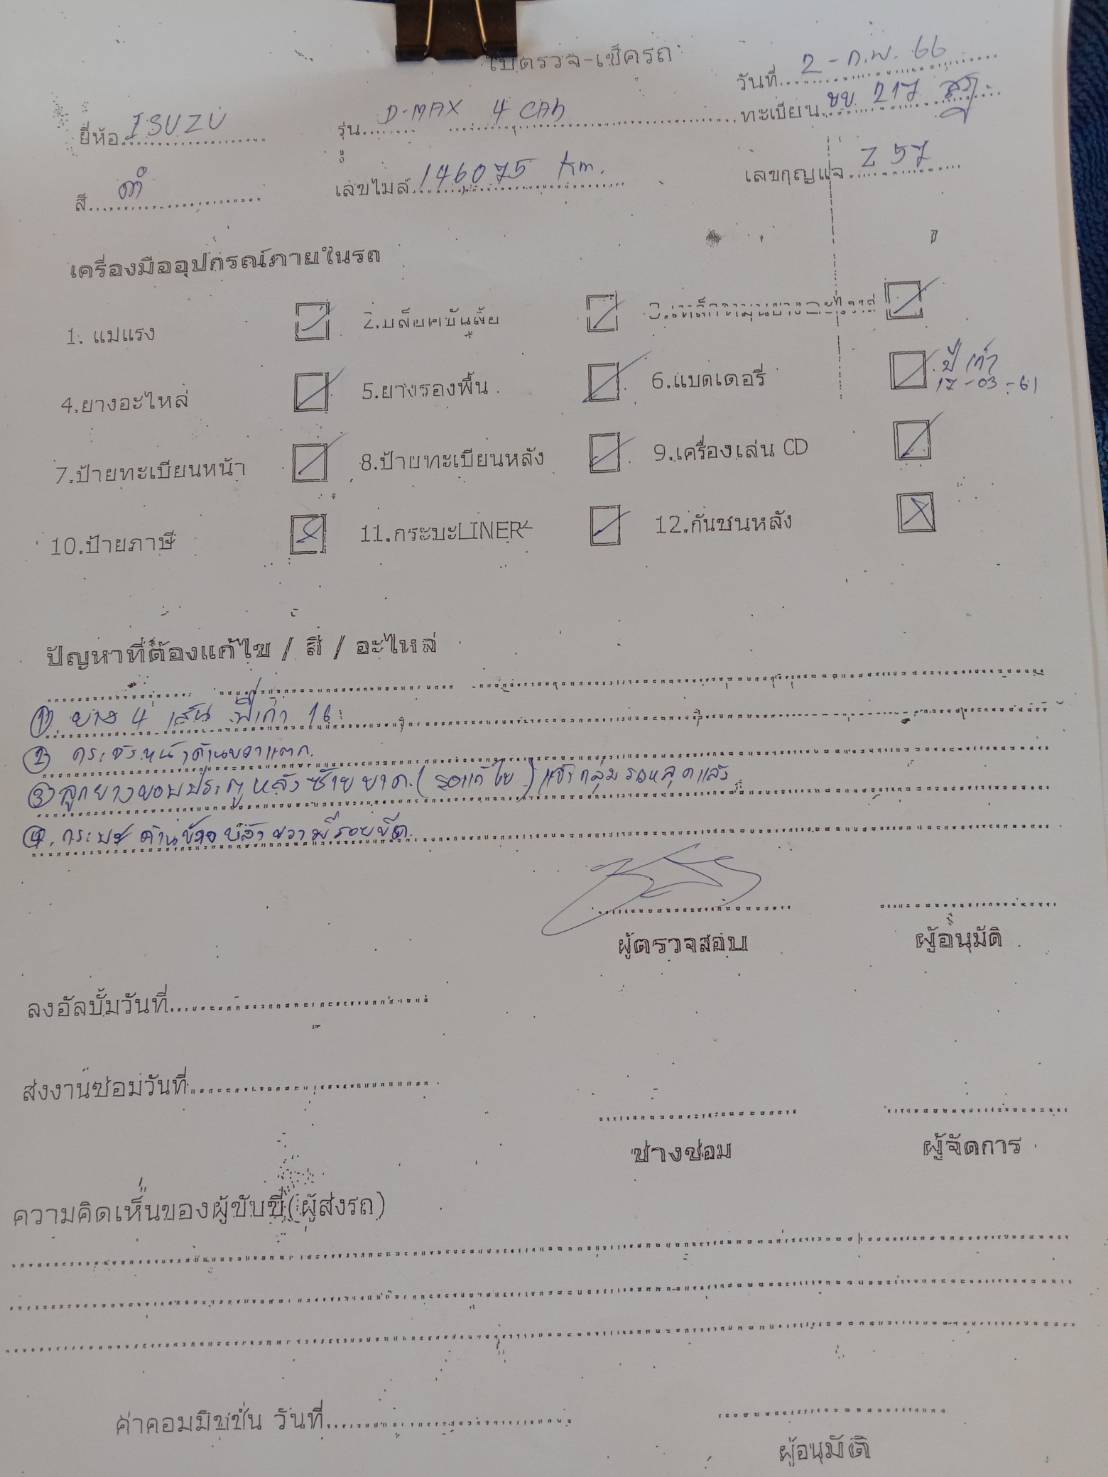 ใบตรวจ-เช็ครถ
วันที่ 2 - ก.พ. 66
ยี่ห้อ ISUZU รุ่น D-MAX 4 CAB ทะเบียน ขบ 217
สี ดำ เลขไมล์ 146075 km. เลขกุญแจ Z 57
เครื่องมืออุปกรณ์ภายในรถ
1. แม่แรง 2.บล็อคขันล้อ
4.ยางอะไหล่ 5.ยางรองพื้น 6.แบตเตอรี่ ปี เก่า 17-03-61
7.ป้ายทะเบียนหน้า 8.ป้ายทะเบียนหลัง 9.เครื่องเล่น CD
10.ป้ายภาษี 11.กระบะLINER 12.กันชนหลัง
ปัญหาที่ต้องแก้ไข / สี / อะไหล่
1). ยาง 4 เส้น ปีเก่า 16
2) กระจกหน้าด้านขวาแตก.
3) ลูกยางขอบประตูหลังซ้ายขาด. (รอแก้ไข) แจ้งกลุ่มรถหลุดแล้ว
4. กระบะด้านข้าง ขวามีรอยขีด.
ผู้ตรวจสอบ ผู้อนุมัติ
ลงอัลบั้มวันที่
ส่งงานซ่อมวันที่
ช่างซ่อม ผู้จัดการ
ความคิดเห็นของผู้ขับขี่(ผู้ส่งรถ)
ค่าคอมมิชชั่น วันที่
ผู้อนุมัติ